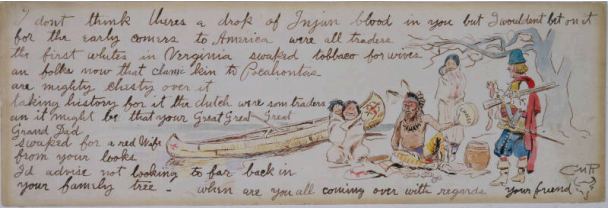 I dont think theres a drop of Injun blood in you but I wouldent bet on it
for the early comers to America were all traders
the first whites in Virginia swaked tobbaco for wives
an folks now that clame kin to Pocahontas
are mighty chesty over it
taking history for it the dutch were som traders
an it might be that your Great Great Great
Grand Dad
swaked for a red Wife
from your looks
Id advise not looking to far back in
your family tree - when are you all coming over with regards your friend
CMR